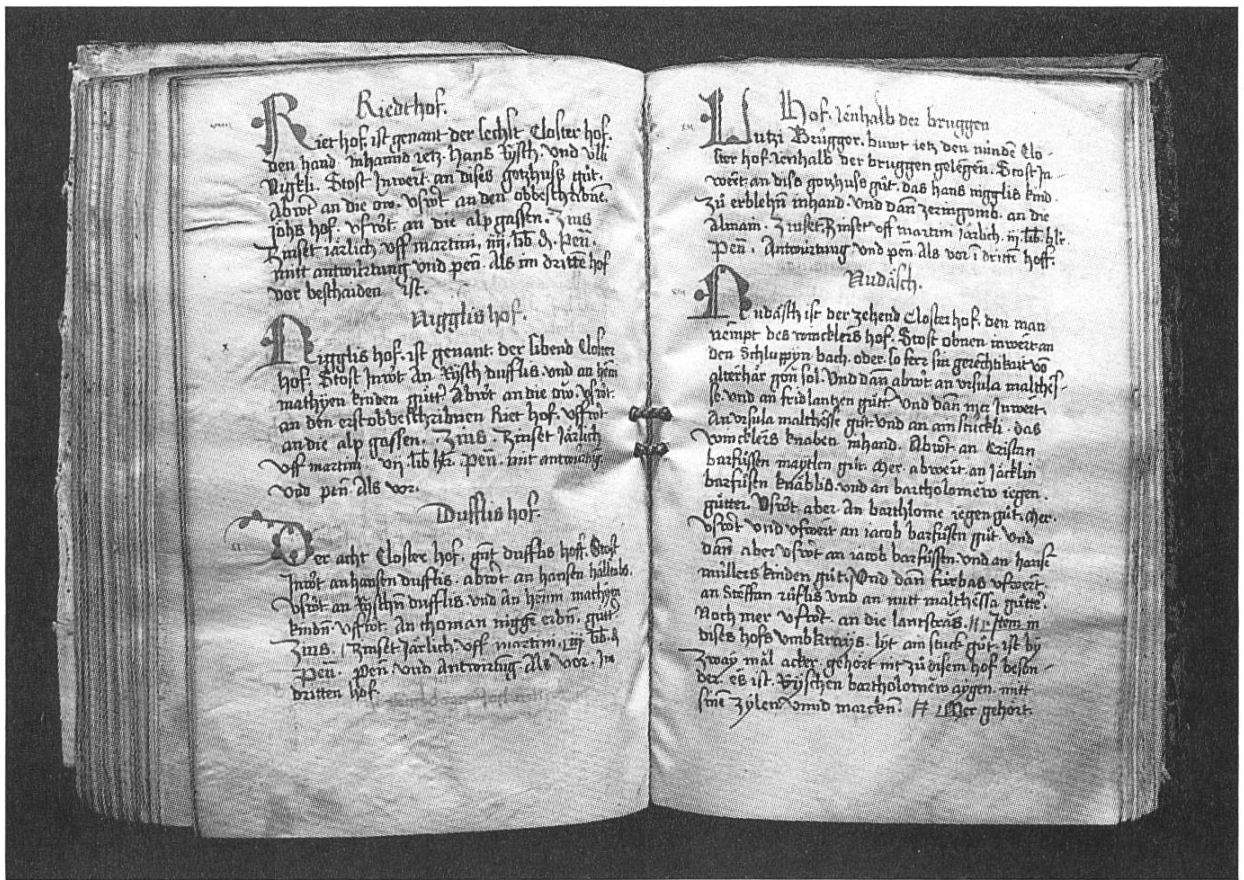 Riedt hof.
Riethof. ist genant der sechst Closter hof.
den hand. Inhannd ietz. Hans Rysch. und ulli
Nigkli. Stost Inwert. an dises gotzhuss gůt.
Abwort an die ow. uswort an den obbeschribne.
johs hof. ufwort an die alp gassen. Zins
Zinset jarlich uff martini, iiij. lib d. Pen.
mitt antwürtung vnd pen. Als im dritte hof
vor beschaiden ist.
Nigglis hof.
Nigglis hof. ist genant. der sibend Closter
hof. Stost Inwort An Rysch dufflis. und an heini
mathyen kinden gůtt. Abwort an die ow. uswort.
an den erst obbeschribnen Riet hof. uffwort
an die alp gassen. Zins. Zinset Jarlich
uff martini. vij. lib hlr. pen. mit antwurtg
Vnd pen. Als vor.
Dufflis hof.
Der acht Closter hof. gnt dufflis hoff. Stost
Inwort an hansen dufflis. abwort an hansen
uswort an Ryschn dufflis. und an heinni mathyen
kindn. uffwort. An thoman nigge gůtt.
Zins. Zinset Jarlich. uff martini. iij lib. d
Pen. Pen. und Antwurtung. Als vor. Im
dritten hof.
Hof. Ienhalb der bruggen
Lutzi Brugger. buwt ietz den nünde Clo-
ster hof. Ienhalb der bruggen gelegen. Stost In-
wert. an diss gotzhuss gůt. das hans nigglis kind.
Zů erblehn inhand. Vnd dan zeringomb. an die
Almain. Zinset. Zinset uff martini Jarlich. iij. lib hlr.
Pen. Antwurtung. und pen Als vor i dritte hoff.
Nudäsch.
Nudäsch ist der zehend Closterhof. den man
nempt des wincklers hof. Stost obnen inwert an
den Schluppyn bach. oder. so ferr sin gerechtikait vo
alterhar gon sol. Vnd dan abwort an ursula malthes-
se. und an fridlantzen gůtt. Vnd dan mer Inwert.
An ursula malthesse gůt. und an ain stuckli. das
wincklers knaben inhand. Abwort an Cristan
barfůssen maytlen gůt. Mer. abwert. an Jäcklin
barfůssen knäblis. und an bartholomew iegen.
gůtter. Uswort. aber. An barthlome iegen gůt. Mer.
uswort und ufwert an iacob barfůssen gůt. Vnd
dan aber uswort an iacob barfůssen. und an hansi
müllers kinden gůt. Vnd dan fürbas ufwert.
an Steffan rüflis und an nutt malthessa gůtte.
Noch mer ufwort. an die lantstrass. Item in
dises hofs umbkrays. lyt ain stuck gůt. ist by
Zway mal acker. gehört nit zů disem hof beson-
der. es ist. Ryschen bartholomew aygen. mitt
sine zylen vnnd marcken. Mer gehört.